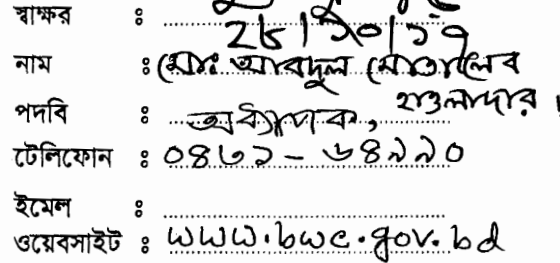 স্বাক্ষর :
২৮/১০/১৭
নাম : মোঃ আবদুল মোতালেব
হাওলাদার।
পদবি : অধ্যাপক,
টেলিফোন : ০৪৩১-৬৪৯৯০
ইমেল :
ওয়েবসাইট : www.bwc.gov.bd